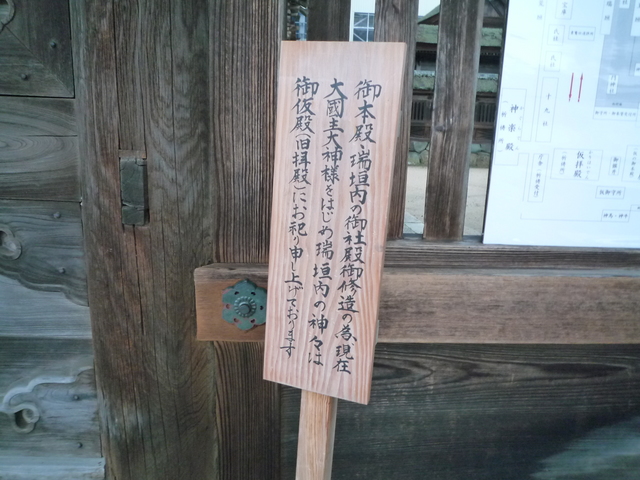 御本殿・瑞垣内の御社殿御修造の為、現在
大國主大神様をはじめ瑞垣内の神々は
御仮殿(旧拝殿)にお祀り申し上げております
神楽殿
十九社
仮拝殿